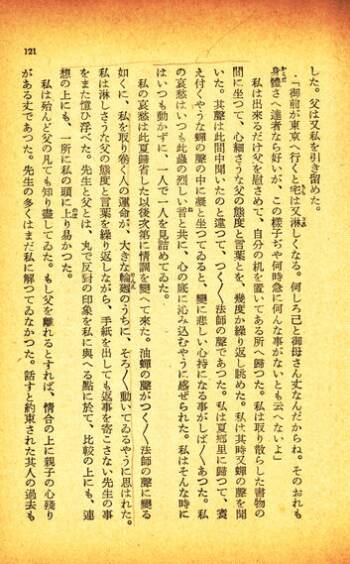 121
した。父は又私を引き留めた。
「御前が東京へ行くと宅は又淋しくなる。何しろ己と御母さん丈なんだからね。そのおれも
身體さへ達者なら好いが、この樣子ぢや何時急に何んな事がないとも云へないよ」
私は出來るだけ父を慰さめて、自分の机を置いてある所へ歸つた。私は取り散らした書物の
間に坐つて、心細さうな父の態度と言葉とを、幾度か繰り返し眺めた。私は其時又蟬の聲を聞
いた。其聲は此間中聞いたのと違つて、つく〱法師の聲であつた。私は夏鄕里に歸つて、煮
え付くやうな蟬の聲の中に凝と坐つてゐると、變に悲しい心持になる事がしば〱あつた。私
の哀愁はいつも此蟲の烈しい音と共に、心の底に沁み込むやうに感ぜられた。私はそんな時に
はいつも動かずに、一人で一人を見詰めてゐた。
私の哀愁は此夏歸省した以後次第に情調を變へて來た。油蟬の聲がつく〱法師の聲に變る
如くに、私を取り卷く人の運命が、大きな輪廻のうちに、そろ〱動いてゐるやうに思はれた。
私は淋しさうな父の態度と言葉を繰り返しながら、手紙を出しても返事を寄こさない先生の事
をまた憶ひ浮べた。先生と父とは、丸で反對の印象を私に與へる點に於て、比較の上にも、連
想の上にも、一所に私の頭に上り易かつた。
私は殆んど父の凡ても知り盡してゐた。もし父を離れるとすれば、情合の上に親子の心殘り
がある丈であつた。先生の多くはまだ私に解つてゐなかつた。話すと約束された其人の過去も